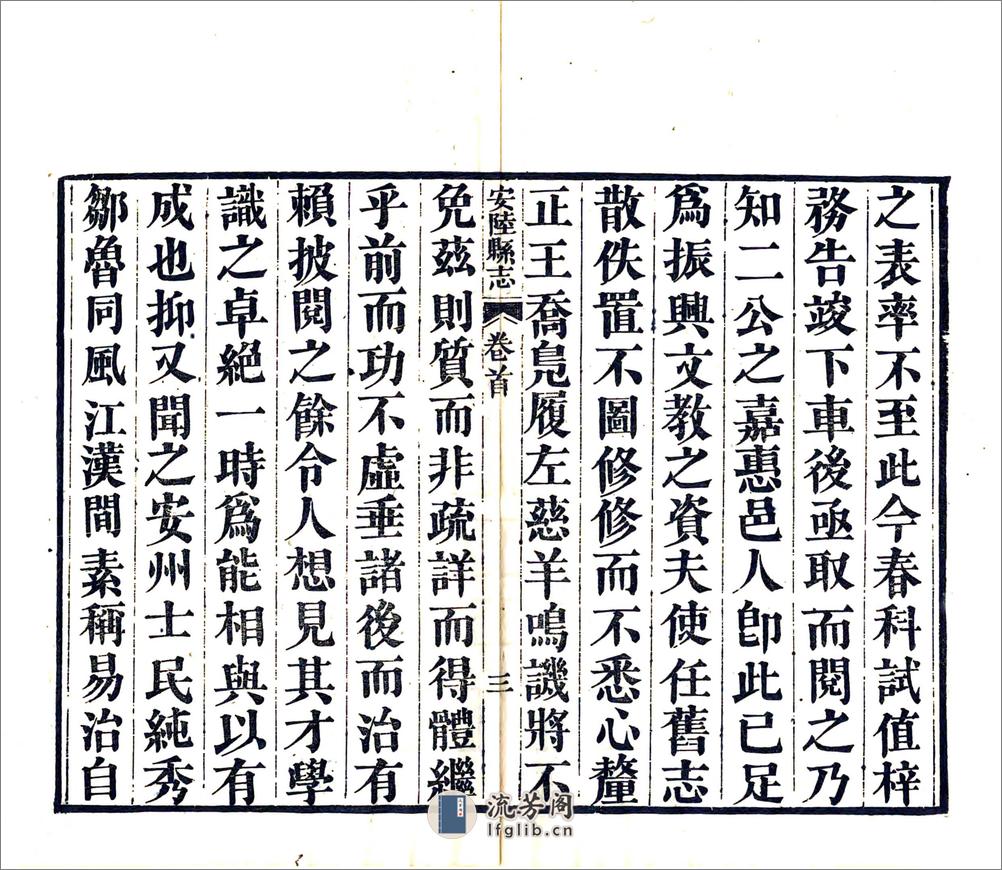 之表率不至此今春科試值梓
務告竣下車後亟取而閱之乃
知二公之嘉惠邑人卽此已足
爲振興文教之資夫使任舊志
散佚置不圖修修而不悉心釐
正王喬鳧履左慈羊鳴譏將不
安陸縣志 卷首 三
免茲則質而非疏詳而得體繼
乎前而功不虛垂諸後而治有
賴披閱之餘令人想見其才學
識之卓絕一時爲能相與以有
成也抑又聞之安州士民純秀
鄒魯同風江漢間素稱易治自
流芳阁
lfglib.cn